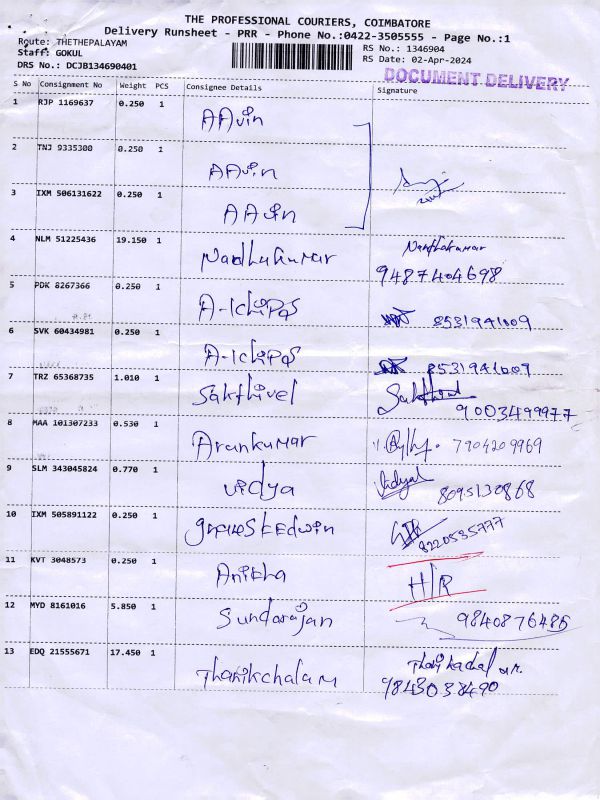 THE PROFESSIONAL COURIERS, COIMBATORE
Delivery Runsheet - PRR - Phone No.:0422-3505555 - Page No.:1
Route: THETHEPALAYAM
Staff: GOKUL
DRS No.: DCJB134690401
RS No.: 1346904
RS Date: 02-Apr-2024
DOCUMENT DELIVERY
S No Consignment No Weight PCS Consignee Details Signature
1 RJP 1169637 0.250 1 AAvin
2 TNJ 9335300 0.250 1 AAvin
3 IXM 506131622 0.250 1 AAvin
4 NLM 51225436 19.150 1 Nandhakumar Nandhakumar
9487404698
5 PDK 8267366 0.250 1 8531941009
6 SVK 60434981 0.250 1 8531941009
7 TRZ 65368735 1.010 1 Sakthivel
9003499977
8 MAA 101307233 0.530 1 Arunkumar 7904209969
9 SLM 343045824 0.770 1 vidya Vidya 8095130868
10 IXM 505891122 0.250 1 8220535777
11 KVT 3048573 0.250 1 Anitha H/R
12 MYD 8161016 5.850 1 Sundarajan 9840876485
13 EDQ 21555671 17.450 1 Thanikchalam
9843033490